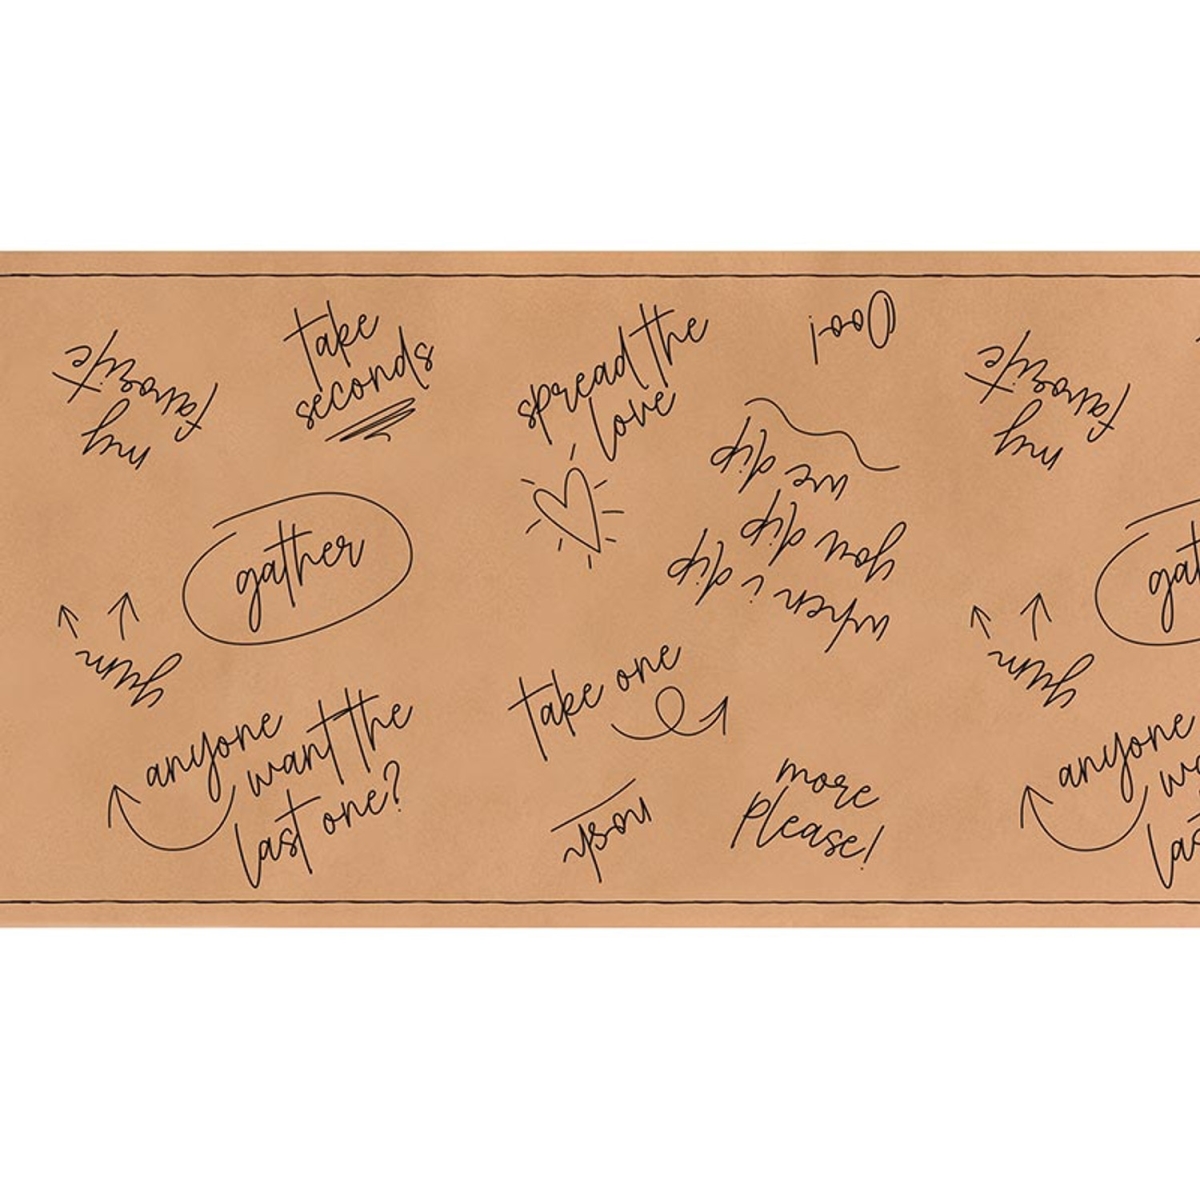 my
favorite
take
seconds
spread the
love
Ooo!
when i dip
you dip
we dip
my
favorite
gather
yum
anyone
want the
last one?
take one
nosh
more
please!
yum
anyone